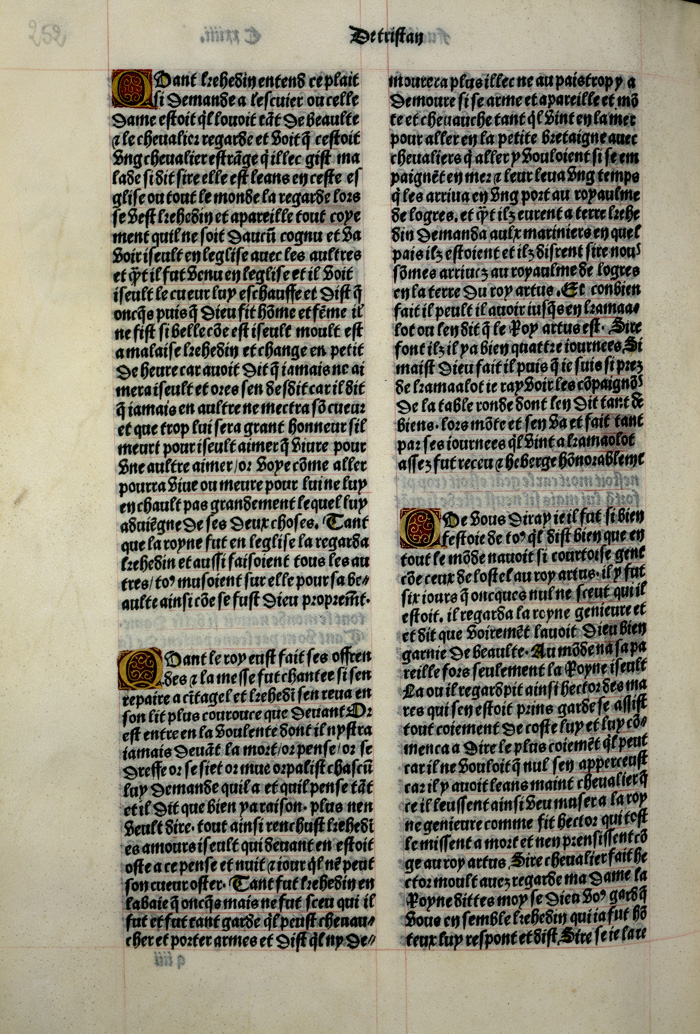 252
De tristan
Quant kehedin entend ce plait
si demande a lescuier ou celle
dame estoit ql louoit tãt de beaulte
⁊ le cheualier regarde et voit q̃ cestoit
vng cheualier estrãge q̃ illec gist ma
lade si dit sire elle est leans en ceste es
glise ou tout le monde la regarde lors
se vest kehedin et apareille tout coye
ment quil ne soit daucũ cognu et va
voir iseult en leglise auec les aultres
et q̃t il fut venu en leglise et il voit
iseult le cueur luy eschauffe et dist q̃
oncq̃s puis q̃ dieu fit hõme et fẽme il
ne fist si belle cõe est iseult moult est
a malaise kehedin et change en petit
de heure car auoit dit q̃ iamais ne ai
mera iseult et ores sen desdit car il dit
q̃ iamais en aultre ne mectra sõ cueur
et que trop lui sera grant honneur sil
meurt pour iseult aimer q̃ viure pour
vne aultre aimer/or voye cõme aller
pourra viue ou meure pour lui ne luy
en chault pas grandement lequel luy
aduiẽgne de ses deux choses. Tant
que la royne fut en leglise la regarda
kehedin et aussi faisoient tous les au
tres/toꝰ musoient sur elle pour sa be⸗
aulte ainsi cõe se fust dieu propremt̃.
Quant le roy eust fait ses offren
des ⁊ la messe fut chantee si sen
repaire a cĩtagel et kehedĩ sen reua en
son lit plus courouce que deuant Or
est entre en la voulente dont il nystra
iamais deuãt la mort/or pense/or se
dresse or se siet or mue or palist chascũ
luy demande quil a et quil pense tãt
et il dit que bien y a raison. plus nen
veult dire. tout ainsi renchust kehedĩ
es amours iseult qui deuant en estoit
oste a ce pense et nuit ⁊ iour ql ne peut
son cueur oster. Tant fut kehedin en
labaie q̃ oncq̃s mais ne fut sceu qui il
fut et fut tant garde ql peust cheuau⸗
cher et porter armes et dist ql ny de⸗
mourera plus illec ne au pais trop y a
demoure si se arme et apareille et mõ
te et cheuauche tant ql vint en la mer
pour aller en la petite bretaigne auec
cheualiers q̃ aller y vouloient si se em
paignẽt en mer ⁊ leur leua vng temps
q̃ les arriua en vng port au royaulme
de logres. et q̃t ilz eurent a terre kehe
din demanda aulx mariniers en quel
pais ilz estoient et ilz disrent sire nouꝰ
sõmes arriuez au royaulme de logres
en la terre du roy artus. Et conbien
fait il peult il auoir iusq̃s en kamaa⸗
lot ou len dit q̃ le Roy artus est. Sire
font ilz il ya bien quattre iournees. Si
maist dieu fait il puis q̃ ie suis si prez
de kamaalot ie ray voir les cõpaignõs
de la table ronde dont len dit tant de
biens. lors mõte et sen va et fait tant
par ses iournees ql vint a kamaolot
assez fut receu ⁊ heberge hõnorablemẽt
Que vous diray ie il fut si bien
festoie de toꝰ ql dist bien que en
tout le mõde nauoit si courtoise gent
cõe ceux de lostel au roy artus. il y fut
six iours q̃ oncques nul ne sceut qui il
estoit. il regarda la royne genieure et
et dit que voiremẽt lauoit dieu bien
garnie de beaulte. Au mõde na sa pa
reille fors seulement la Royne iseult
La ou il regardpit ainsi hector des ma
res qui sen estoit prins garde se assist
tout coiement de coste luy et luy cõ⸗
menca a dire le plus coiemẽt ql peut
car il ne vouloit q̃ nul sen apperceust
car il y auoit leans maint cheualier q̃
ce il leussent ainsi veu muser a la roy
ne genieure comme fit hector qui tost
le missent a mort et nen prensissent cõ
ge au roy artus Sire cheualier fait he
ctor moult auez regarde ma dame la
Royne dittes moy se dieu voꝰ gard q̃
vous en semble kehedin qui ia fut hõ
teux luy respont et dist. Sire se ie la re